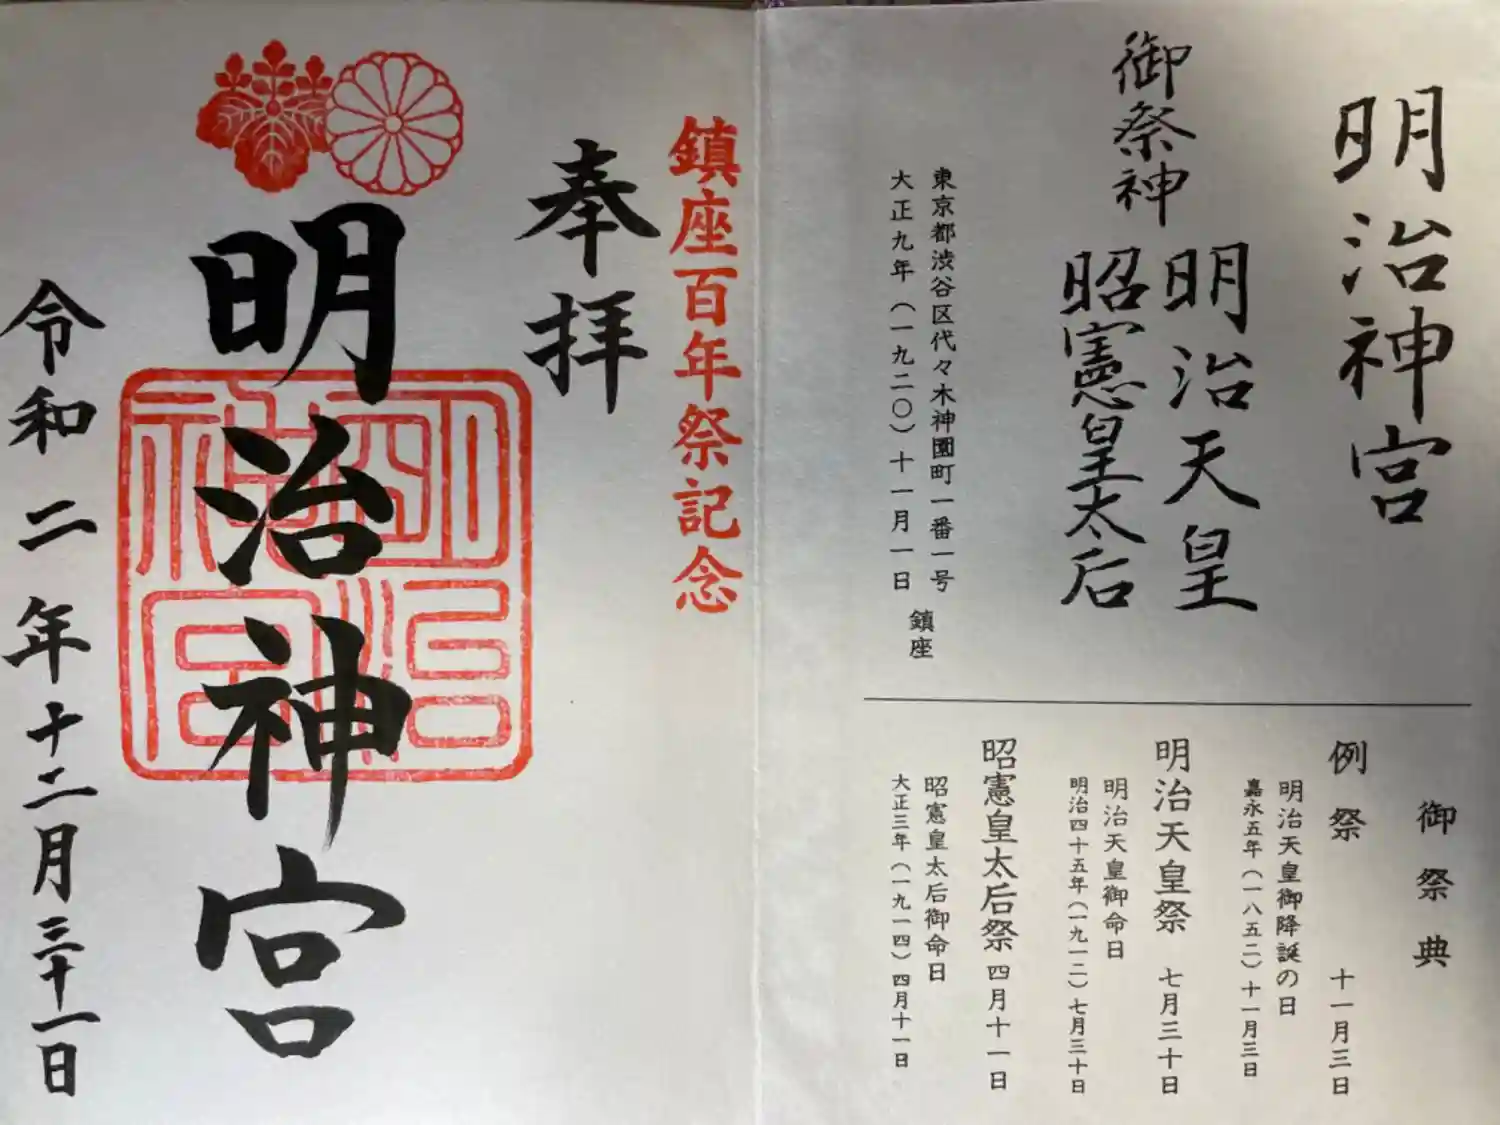 明治神宮
御祭神
明治天皇
昭憲皇太后
東京都渋谷区代々木神園町一番一号
大正九年(一九二〇)十一月一日
鎮座
御祭典
例祭 十一月三日
明治天皇御降誕の日
嘉永五年(一八五二)十一月三日
明治天皇祭 七月三十日
明治天皇御命日
明治四十五年(一九一二)七月三十日
昭憲皇太后祭 四月十一日
昭憲皇太后御命日
大正三年(一九一四)四月十一日
鎮座百年祭記念
奉拝
明治神宮
明治神宮
令和二年十二月三十一日